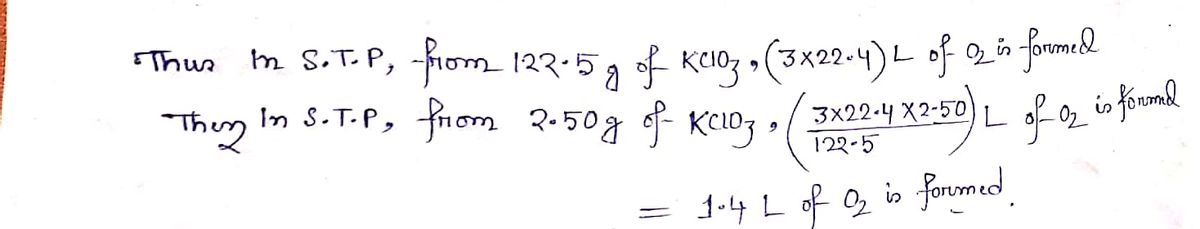 Thus In S.T.P, from 122.5 g of KClO3, (3×22.4) L of O2 is formed
Then In S.T.P, from 2.50g of KClO3, (3×22.4×2.50/122.5) L of O2 is formed
= 1.4 L of O2 is formed.